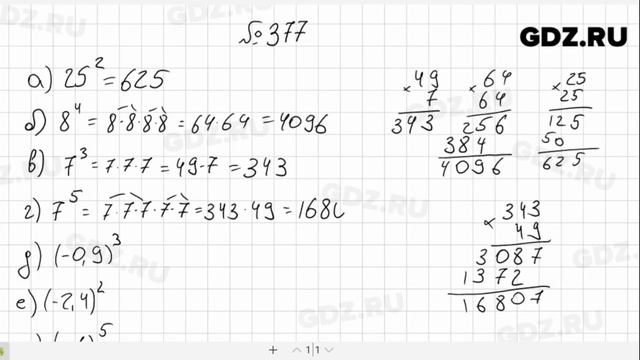 №377
GDZ.RU
а) 25² = 625
б) 8⁴ = 8·8·8·8 = 64·64 = 4096
в) 7³ = 7·7·7 = 49·7 = 343
г) 7⁵ = 7·7·7·7·7 = 343·49 = 1680
д) (-0,9)³
е) (-2,4)²
5
× 49
7
343
× 64
64
256
384
4096
× 25
25
125
50
625
× 343
49
3087
1372
16807
+ 1|1